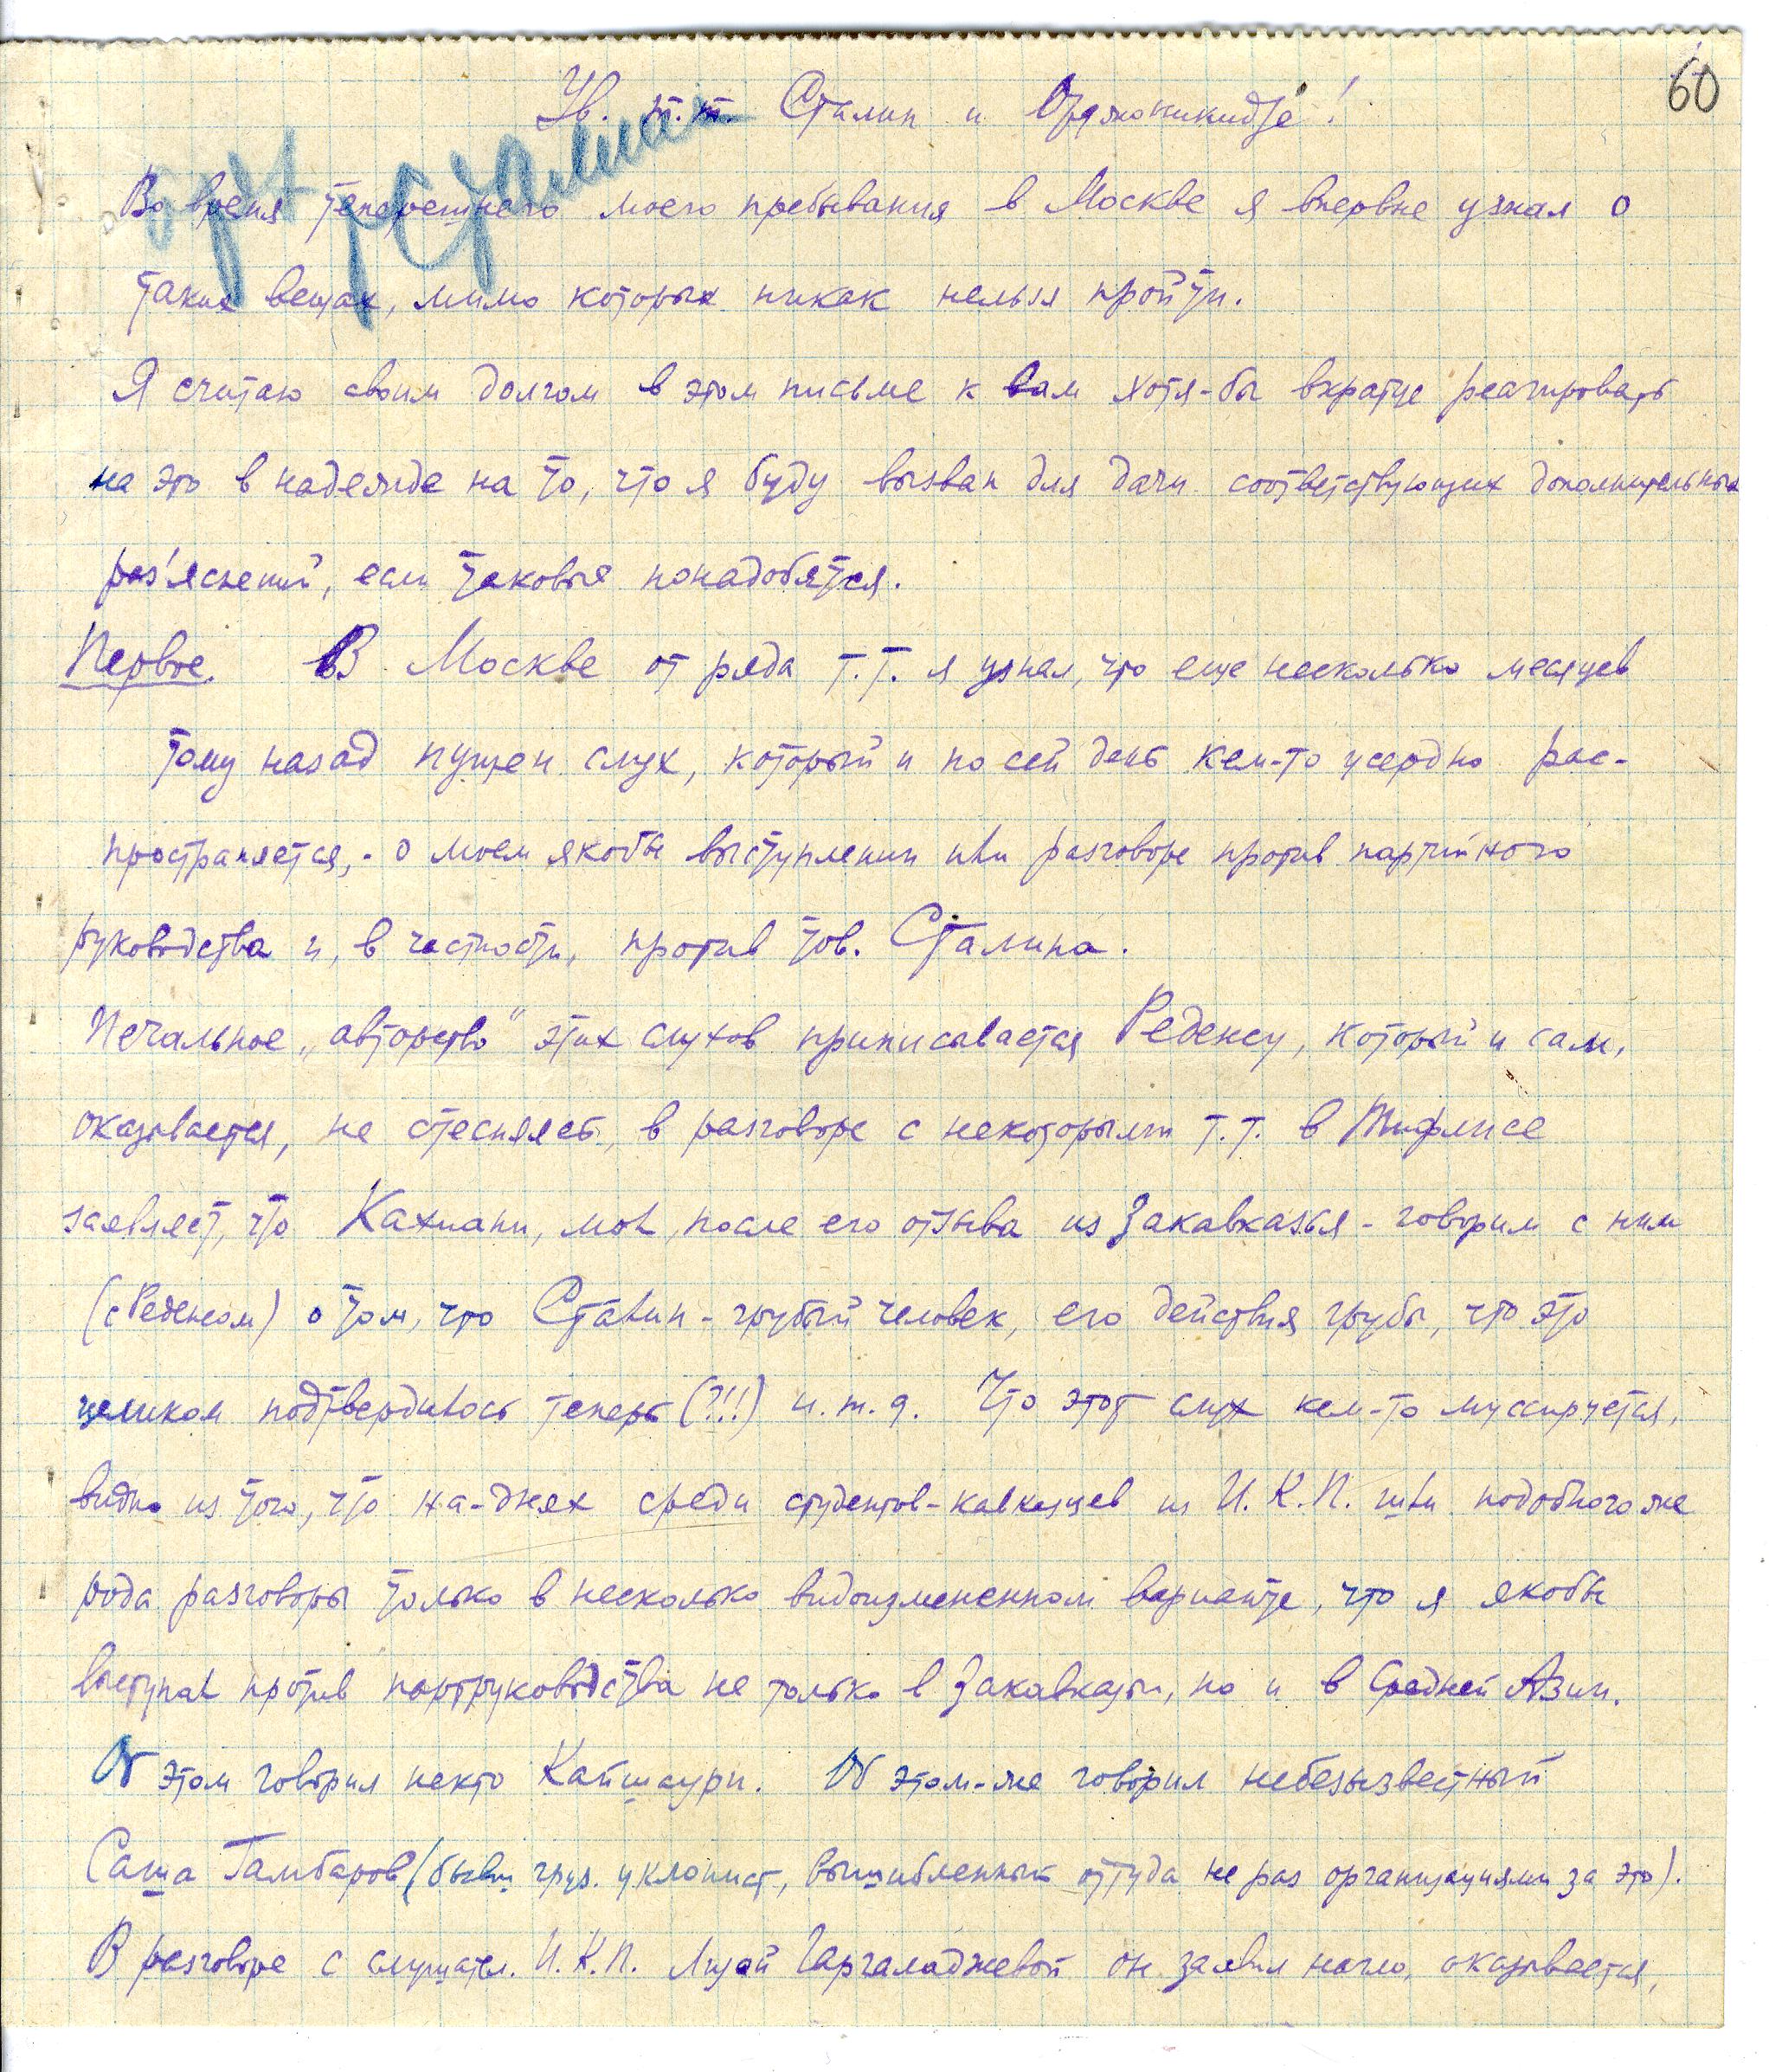 60
Ув. т.т. Сталин и Орджоникидзе!
Во время теперешнего моего пребывания в Москве я впервые узнал о
таких вещах, мимо которых никак нельзя пройти.
Я считаю своим долгом в этом письме к вам хотя-бы вкратце реагировать
на это в надежде на то, что я буду вызван для дачи соответствующих дополнительных
раз'яснений, если таковые понадобятся.
Первое. В Москве от ряда т.т. я узнал, что еще несколько месяцев
тому назад пущен слух, который и по сей день кем-то усердно рас-
пространяется, - о моем якобы выступлении или разговоре против партийного
руководства и, в частности, против тов. Сталина.
Печальное „авторство" этих слухов приписывается Реденсу, который и сам,
оказывается, не стесняясь, в разговоре с некоторыми т.т. в Тифлисе
заявляет, что Кахиани, мол, после его отзыва из Закавказья - говорил с ним
(с Реденсом) о том, что Сталин - грубый человек, его действия грубы, что это
целиком подтвердилось теперь (?!!) и.т.д. Что этот слух кем-то муссируется,
видно из того, что на-днях среди студентов-кавказцев из И.К.П. шли подобного же
рода разговоры только в несколько видоизмененном варианте, что я якобы
выступал против партруководства не только в Закавказьи, но и в Средней Азии.
Об этом говорил некто Кайшаури. Об этом-же говорил небезызвестный
Саша Гамбаров (бывш. груз. уклонист, вышибленный оттуда не раз организациями за это).
В разговоре с слушател. И.К.П. Лизой Гаргаладжевой он заявил нагло, оказывается,